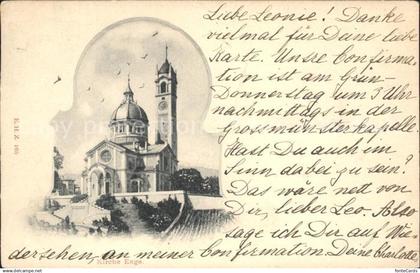 Liebe Leonie! Danke
vielmal für Deine liebe
Karte. Unsre Confirma-
tion ist am Grün-
Donnerstag um 3 Uhr
nachmittags in der
Grossmünsterkapelle
Hast Du auch im
Sinn dabei zu sein?
Das wäre nett von
Dir, lieber Leo. Also
sage ich Dir Auf Wie-
dersehen, an meiner Confirmation. Deine Charlotte
E. H. Z. 165
Kirche Enge